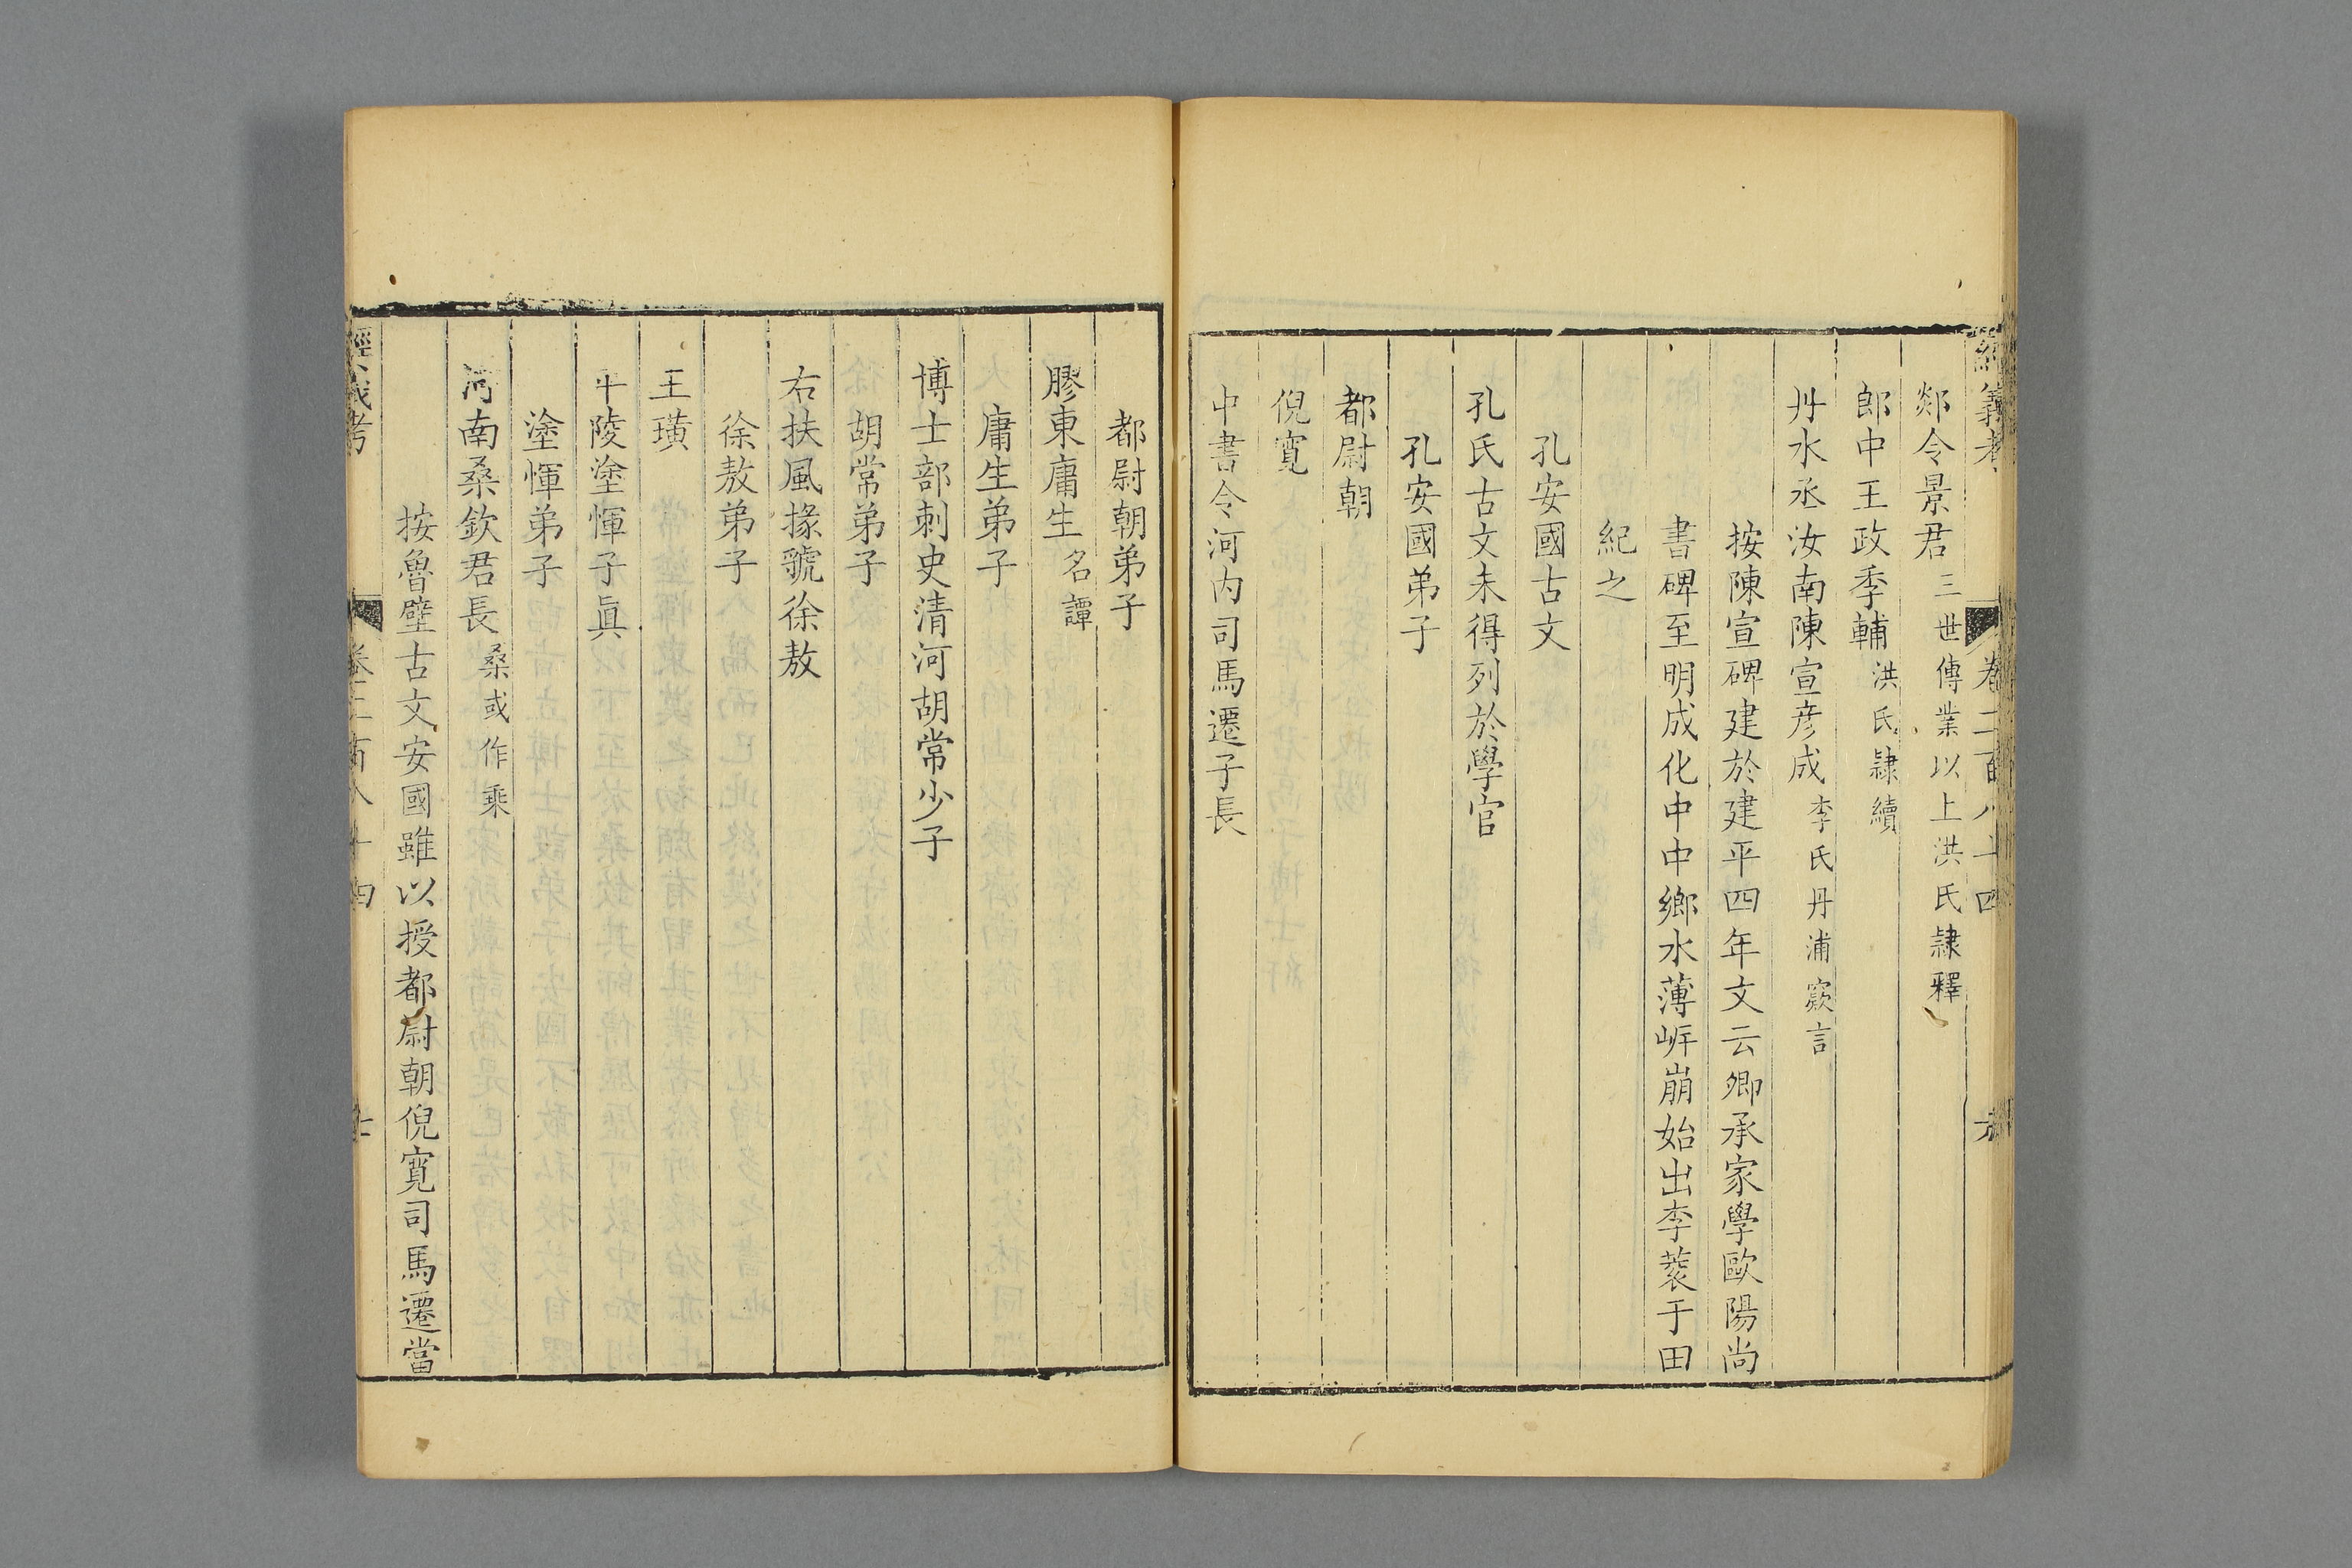 經義考 卷二百八十四
郯令景君 三世傳業以上洪氏隷釋
郎中王政季輔 洪氏隷續
丹水丞汝南陳宣彦成 李氏丹浦窾言
按陳宣碑建於建平四年文云卿承家學歐陽尚
書碑至明成化中中鄉水薄㟁崩始出李蓘于田
紀之
孔安國古文
孔氏古文未得列於學官
孔安國弟子
都尉朝
倪寬
中書令河内司馬遷子長
都尉朝弟子
膠東庸生 名譚
庸生弟子
博士部刺史清河胡常少子
胡常弟子
右扶風掾虢徐敖
徐敖弟子
王璜
平陵塗惲子眞
塗惲弟子
河南桑欽君長 桑或作乘
按魯壁古文安國雖以授都尉朝倪寬司馬遷當
經義考 卷二百八十四